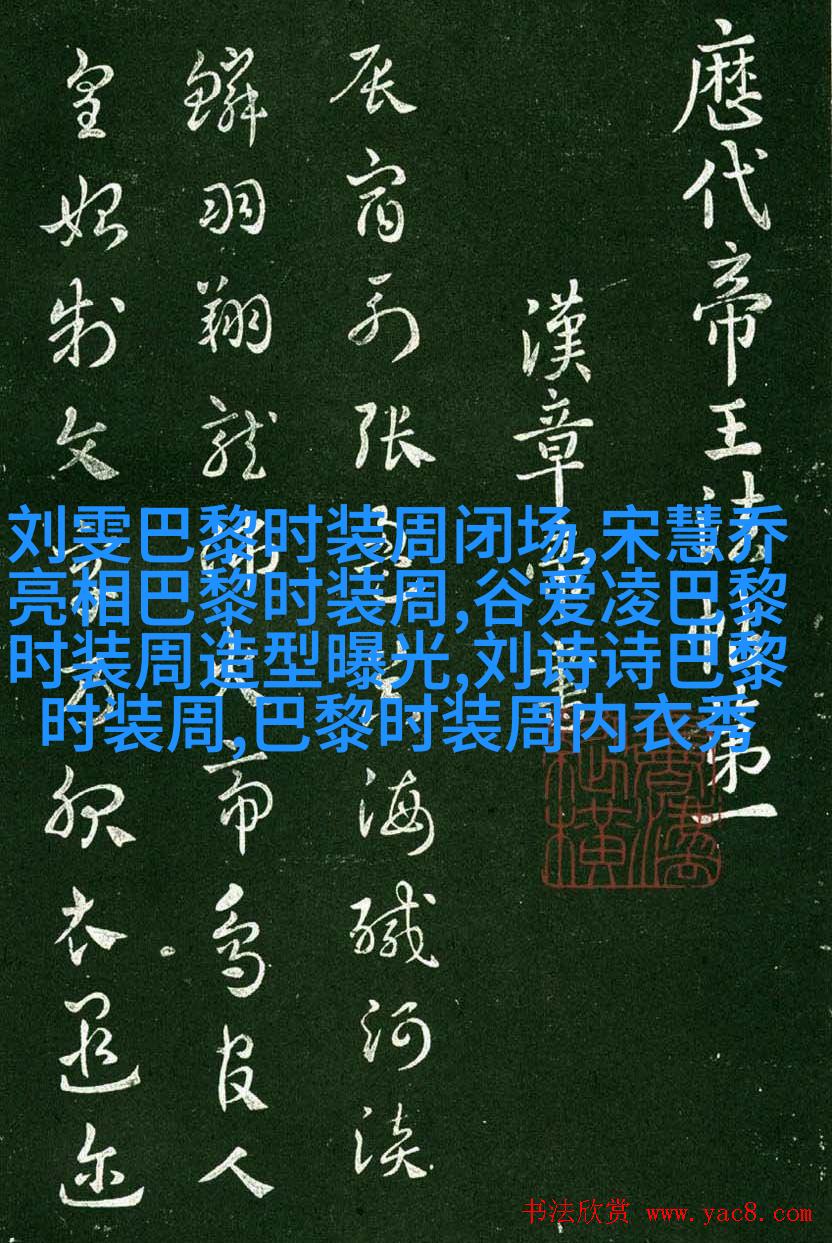 歷代帝王法帖第一
漢章帝書
辰宿列張海鹹河淡
鱗羽翔龍師火帝鳥官人
皇始制文字乃服衣遐迩
刘雯巴黎时装周闭场,宋慧乔
亮相巴黎时装周,谷爱凌巴黎
时装周造型曝光,刘诗诗巴黎
时装周,巴黎时装周内衣秀
书法欣赏 www.yac8.com